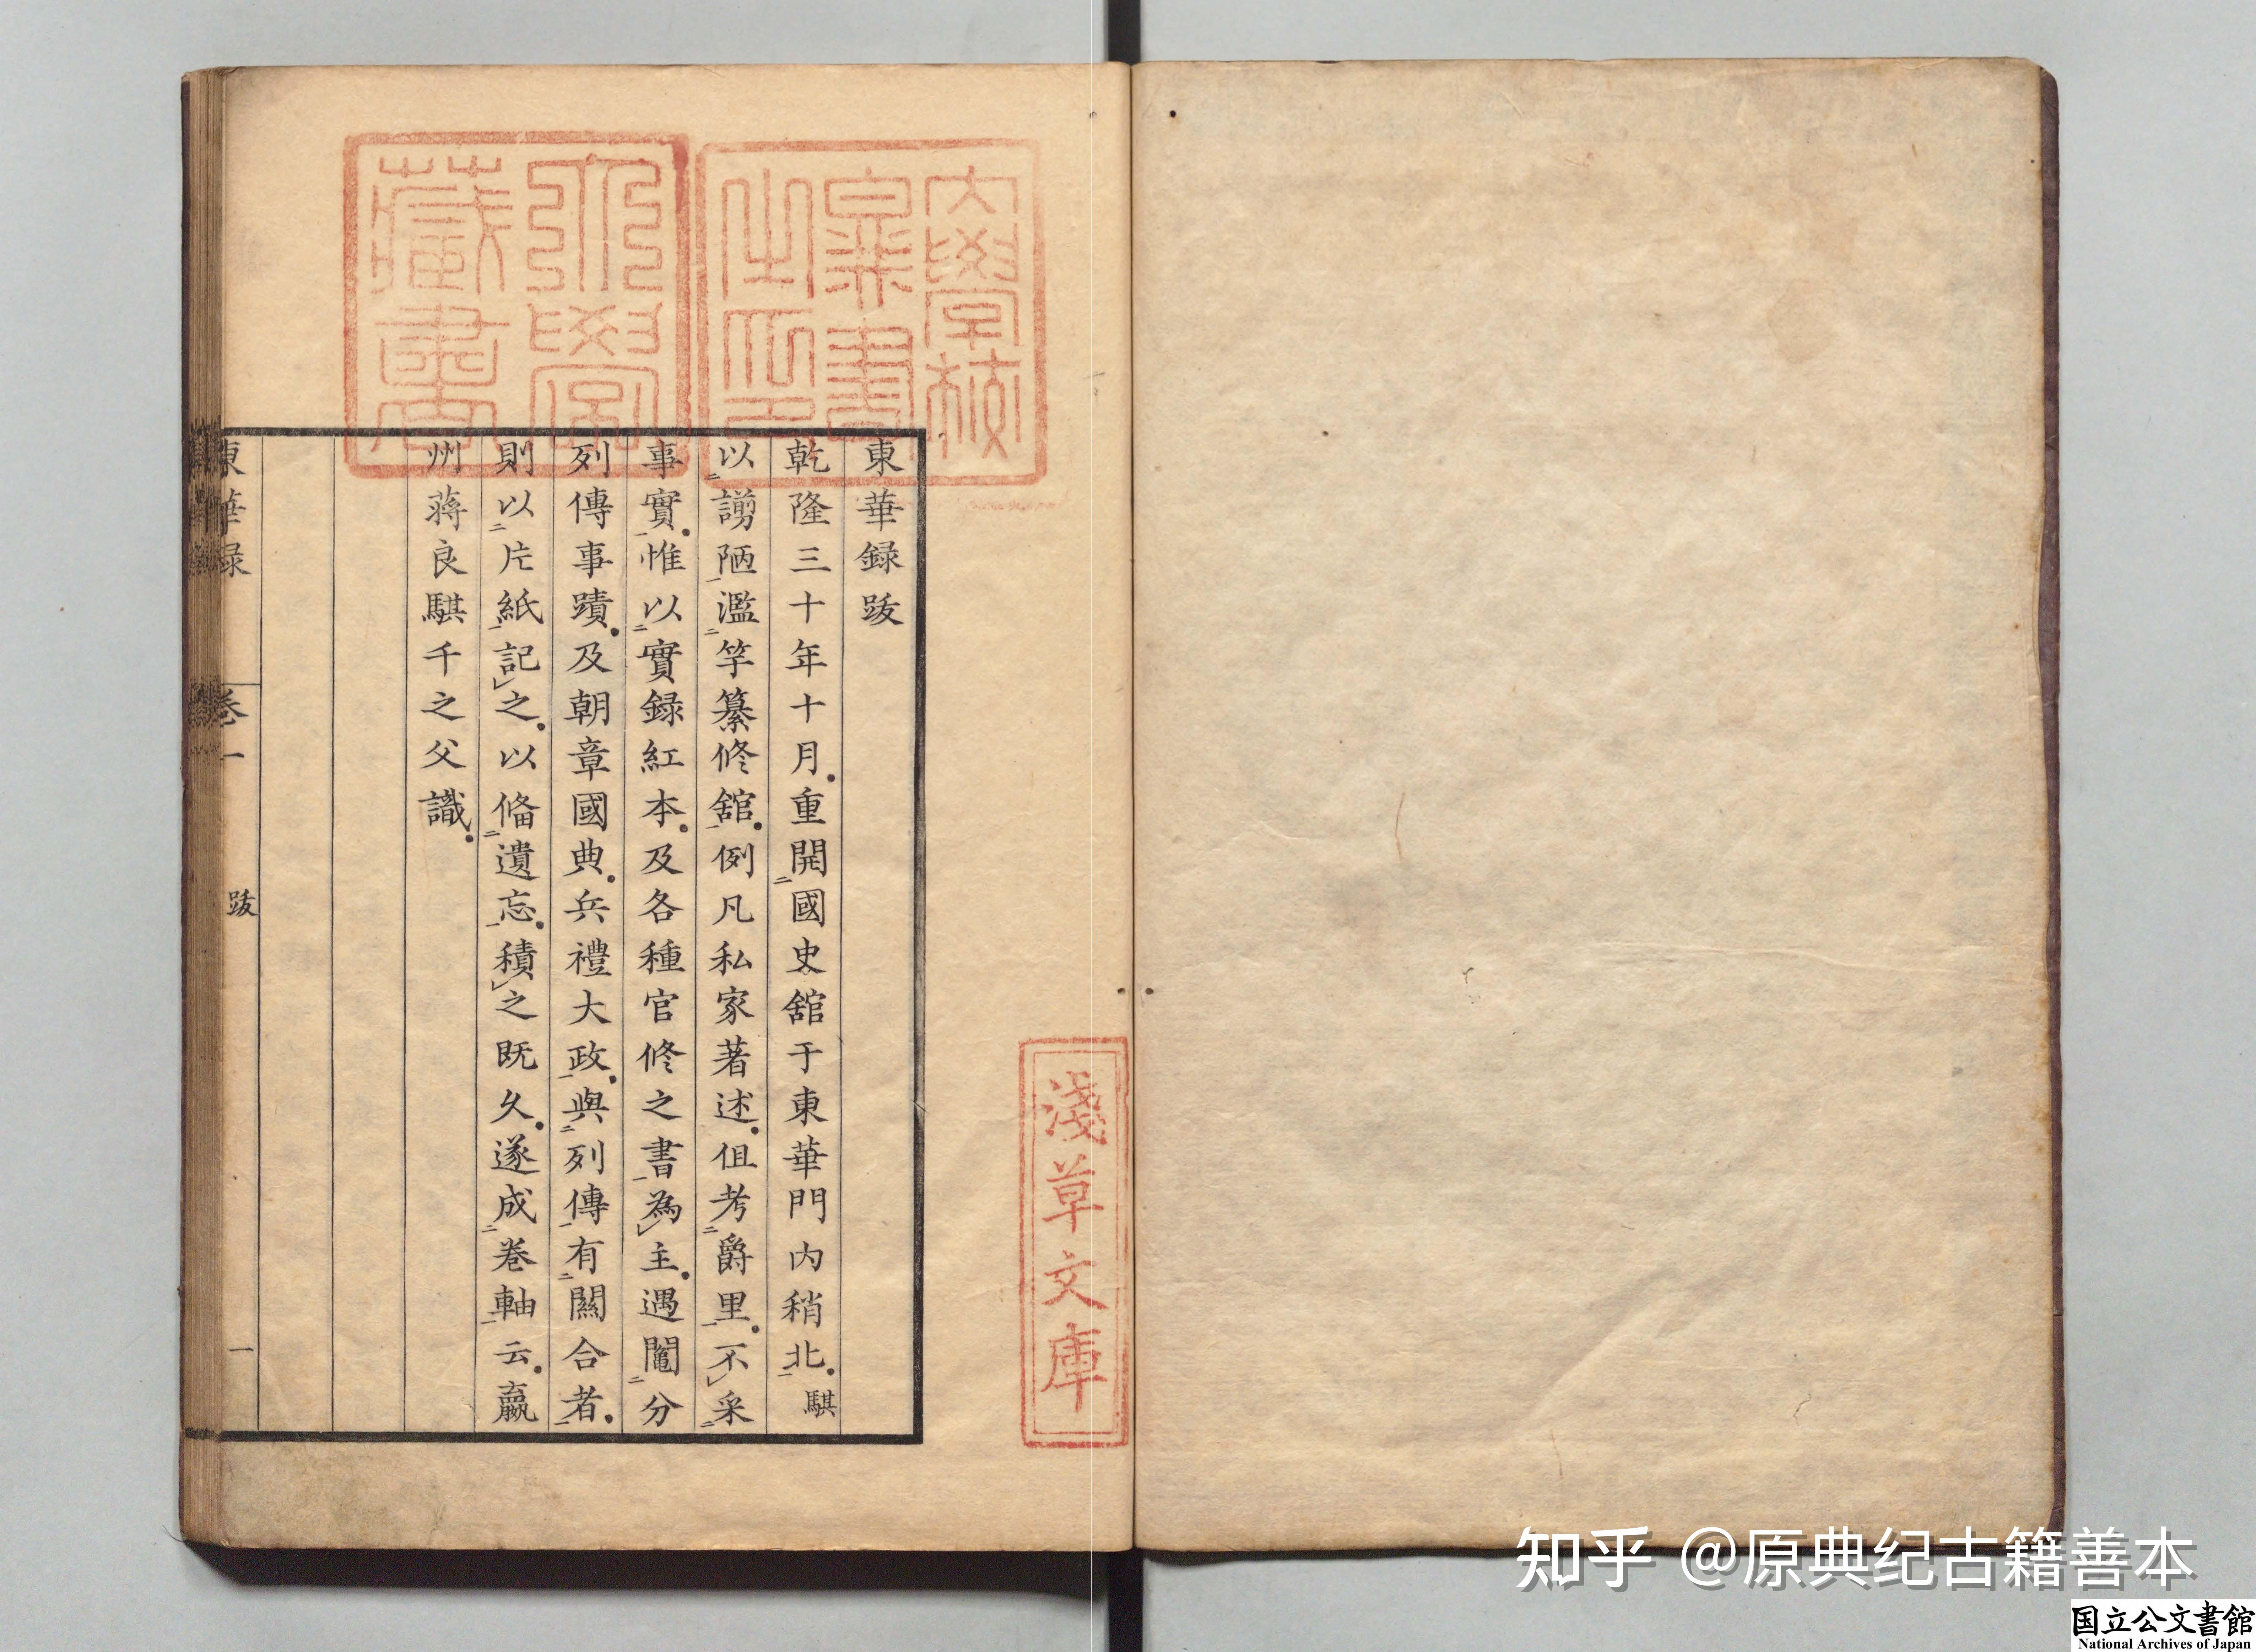 大學校圖書之印
學藏書
東華録跋
乾隆三十年十月。重開國史舘于東華門内稍北。騏
以謭陋濫竽纂修舘。例凡私家著述。但考爵里。不采
事實。惟以實録紅本。及各種官修之書為主。遇鬮分
列傳事蹟。及朝章國典。兵禮大政。與列傳有關合者。
則以片紙記之。以偹遺忘。積之既久。遂成卷軸云。嬴
州蔣良騏千之父識。
東華録 卷一 跋 一
淺草文庫
知乎 @原典纪古籍善本
国立公文書館
National Archives of Japan